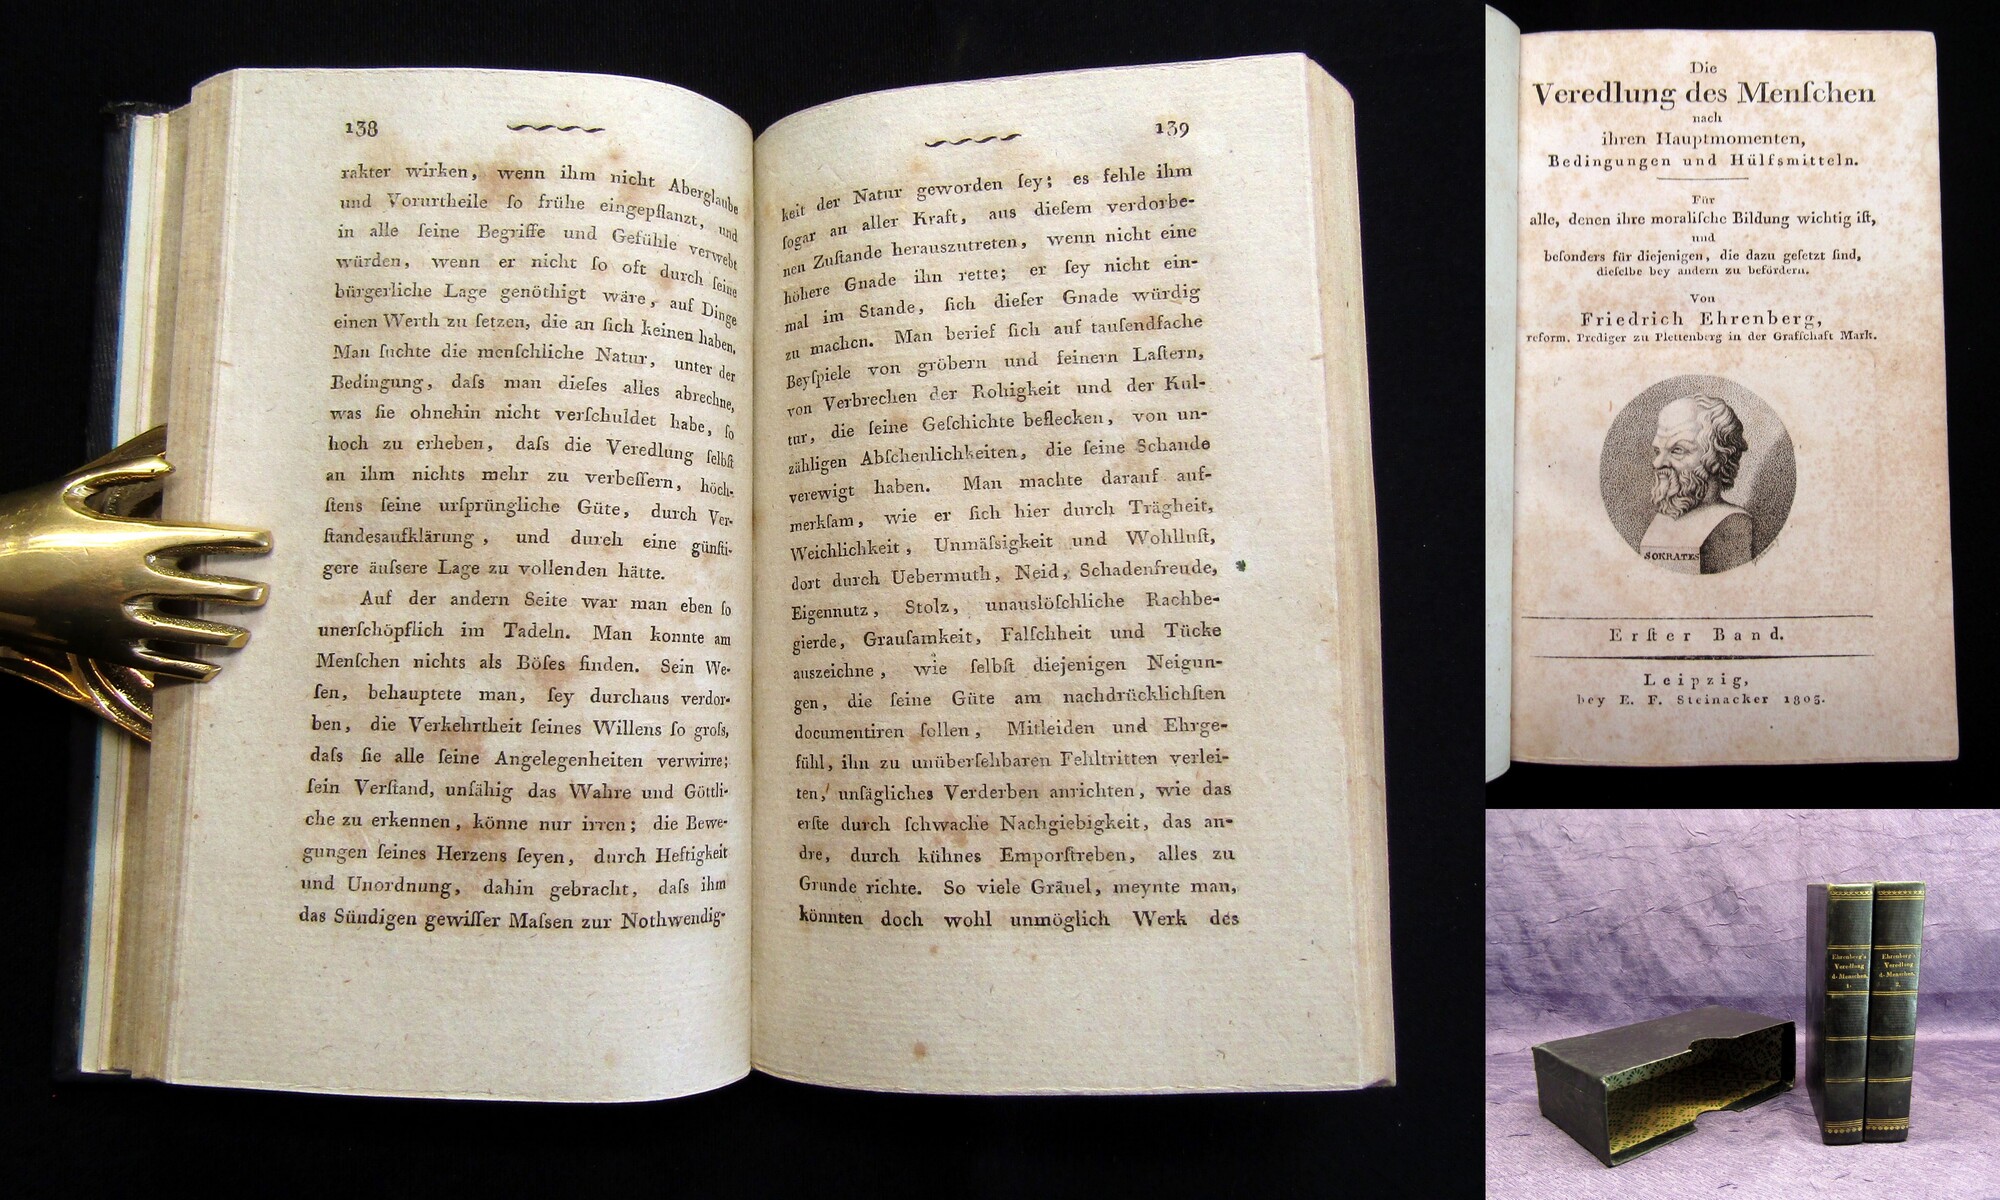 138
rakter wirken, wenn ihm nicht Aberglaube
und Vorurtheile ſo frühe eingepflanzt, und
in alle ſeine Begriffe und Gefühle verwebt
würden, wenn er nicht ſo oft durch ſeine
bürgerliche Lage genöthigt wäre, auf Dinge
einen Werth zu ſetzen, die an ſich keinen haben.
Man ſuchte die menſchliche Natur, unter der
Bedingung, daſs man dieſes alles abrechne,
was ſie ohnehin nicht verſchuldet habe, ſo
hoch zu erheben, daſs die Veredlung ſelbſt
an ihm nichts mehr zu verbeſſern, höch-
ſtens ſeine urſprüngliche Güte, durch Ver-
ſtandesaufklärung, und durch eine günſti-
gere äuſsere Lage zu vollenden hätte.
Auf der andern Seite war man eben ſo
unerſchöpflich im Tadeln. Man konnte am
Menſchen nichts als Böſes finden. Sein We-
ſen, behauptete man, ſey durchaus verdor-
ben, die Verkehrtheit ſeines Willens ſo groſs,
daſs ſie alle ſeine Angelegenheiten verwirre;
ſein Verſtand, unfähig das Wahre und Göttli-
che zu erkennen, könne nur irren; die Bewe-
gungen ſeines Herzens ſeyen, durch Heftigkeit
und Unordnung, dahin gebracht, daſs ihm
das Sündigen gewiſſer Maſsen zur Nothwendig-
139
keit der Natur geworden ſey; es fehle ihm
ſogar an aller Kraft, aus dieſem verdorbe-
nen Zuſtande herauszutreten, wenn nicht eine
höhere Gnade ihn rette; er ſey nicht ein-
mal im Stande, ſich dieſer Gnade würdig
zu machen. Man berief ſich auf tauſendfache
Beyſpiele von gröbern und feinern Laſtern,
von Verbrechen der Rohigkeit und der Kul-
tur, die ſeine Geſchichte beflecken, von un-
zähligen Abſcheulichkeiten, die ſeine Schande
verewigt haben. Man machte darauf auf-
merkſam, wie er ſich hier durch Trägheit,
Weichlichkeit, Unmäſsigkeit und Wohlluſt,
dort durch Uebermuth, Neid, Schadenfreude,
Eigennutz, Stolz, unauslöſchliche Rachbe-
gierde, Grauſamkeit, Falſchheit und Tücke
auszeichne, wie ſelbſt diejenigen Neigun-
gen, die ſeine Güte am nachdrücklichſten
documentiren ſollen, Mitleiden und Ehrge-
fühl, ihn zu unüberſehbaren Fehltritten verlei-
ten, unſägliches Verderben anrichten, wie das
erſte durch ſchwache Nachgiebigkeit, das an-
dre, durch kühnes Emporſtreben, alles zu
Grunde richte. So viele Gräuel, meynte man,
könnten doch wohl unmöglich Werk des
Die
Veredlung des Menſchen
nach
ihren Hauptmomenten,
Bedingungen und Hülfsmitteln.
Für
alle, denen ihre moraliſche Bildung wichtig iſt,
und
beſonders für diejenigen, die dazu geſetzt ſind,
dieſelbe bey andern zu befördern.
Von
Friedrich Ehrenberg,
reform. Prediger zu Plettenberg in der Grafſchaft Mark.
SOKRATES
Erſter Band.
Leipzig,
bey E. F. Steinacker 1803.
Ehrenberg's
Veredlung
d. Menschen.
1.
Ehrenberg's
Veredlung
d. Menschen.
2.